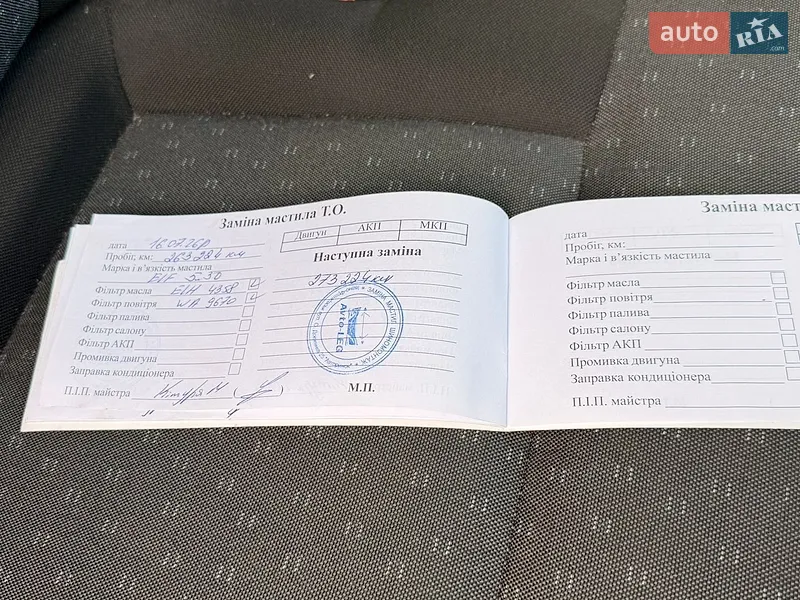 auto RIA.com
Заміна мастила Т.О.
Двигун АКП МКП
дата 16.07.26р
Пробіг, км: 263 224 км
Марка і в'язкість мастила
Elf 5-30
Фільтр масла E/H 4358
Фільтр повітря WA 9670
Фільтр палива
Фільтр салону
Фільтр АКП
Промивка двигуна
Заправка кондиціонера
П.І.П. майстра
Наступна заміна
273 224 км
ЗАМІНА МАСТИЛ ШИНОМОНТАЖ
Avto-LEG
М.П.
Заміна маст
дата
Пробіг, км:
Марка і в'язкість мастила
Фільтр масла
Фільтр повітря
Фільтр палива
Фільтр салону
Фільтр АКП
Промивка двигуна
Заправка кондиціонера
П.І.П. майстра